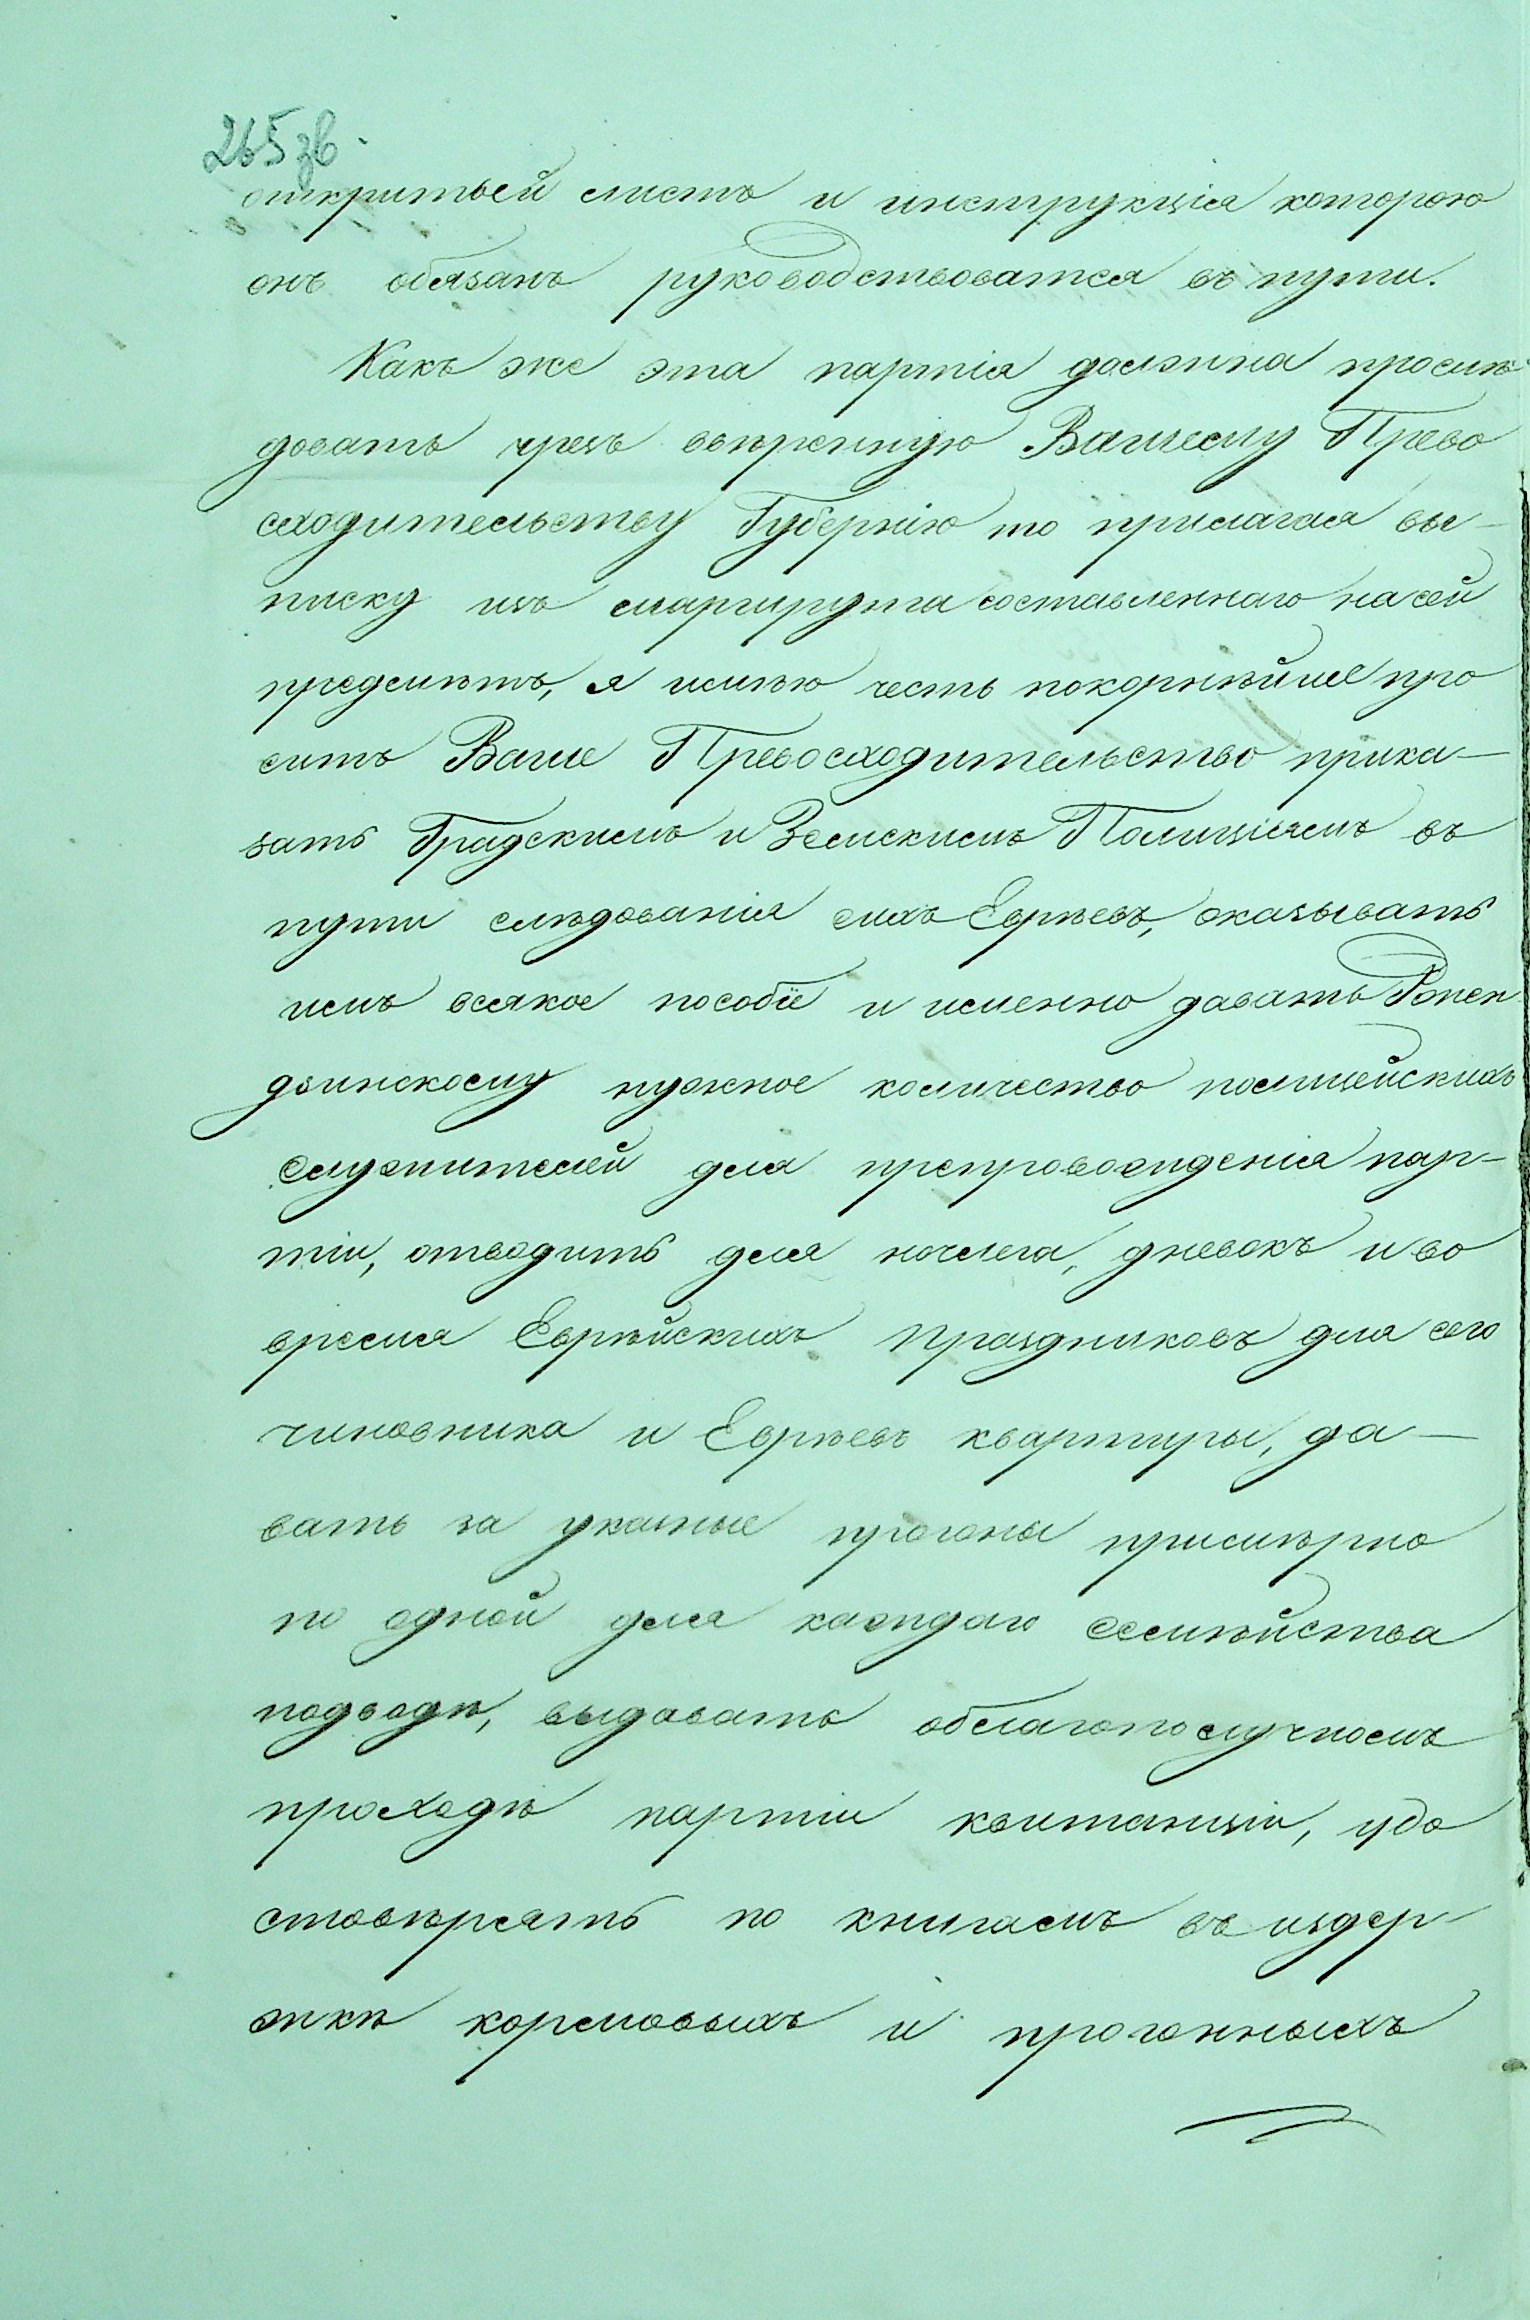 265 зв.
открытый листъ и инструкція которою
онъ обязанъ руководствоватся въ пути.
Какъ же эта партія должна прослѣ-
довать чрезъ ввѣренную Вашему Прево
сходительству Губернію то прилагая вы-
писку изъ маршрута составленнаго на сей
предмѣтъ, я имѣю честь покорнѣйше про
сить Ваше Превосходительство прика-
зать Градскимъ и Земскимъ Полиціямъ въ
пути слѣдованія сихъ Еврѣевъ, оказывать
имъ всякое пособіе и именно давать Ропен
двинскому нужное количество полицейскихъ
служителей для препровожденія пар-
тіи, отводить для ночлега, дневокъ и во
время Еврѣйскихъ праздниковъ для сего
чиновника и Еврѣевъ квартиры, да-
вать за указные прогоны примѣрно
по одной для каждаго семѣйства
подводѣ, выдавать облагополучномъ
проходѣ партіи квитанціи, удо
стовѣрять по книгамъ въ издер-
жкѣ кормовыхъ и прогонныхъ